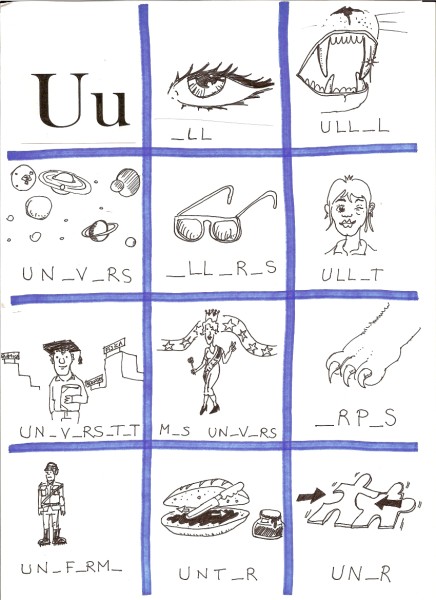 Uu
_LL
ULL_L
UN_V_RS
_LL_R_S
ULL_T
UN_V_RS_T_T
M_S UN_V_RS
_RP_S
UN_F_RM_
UNT_R
UN_R